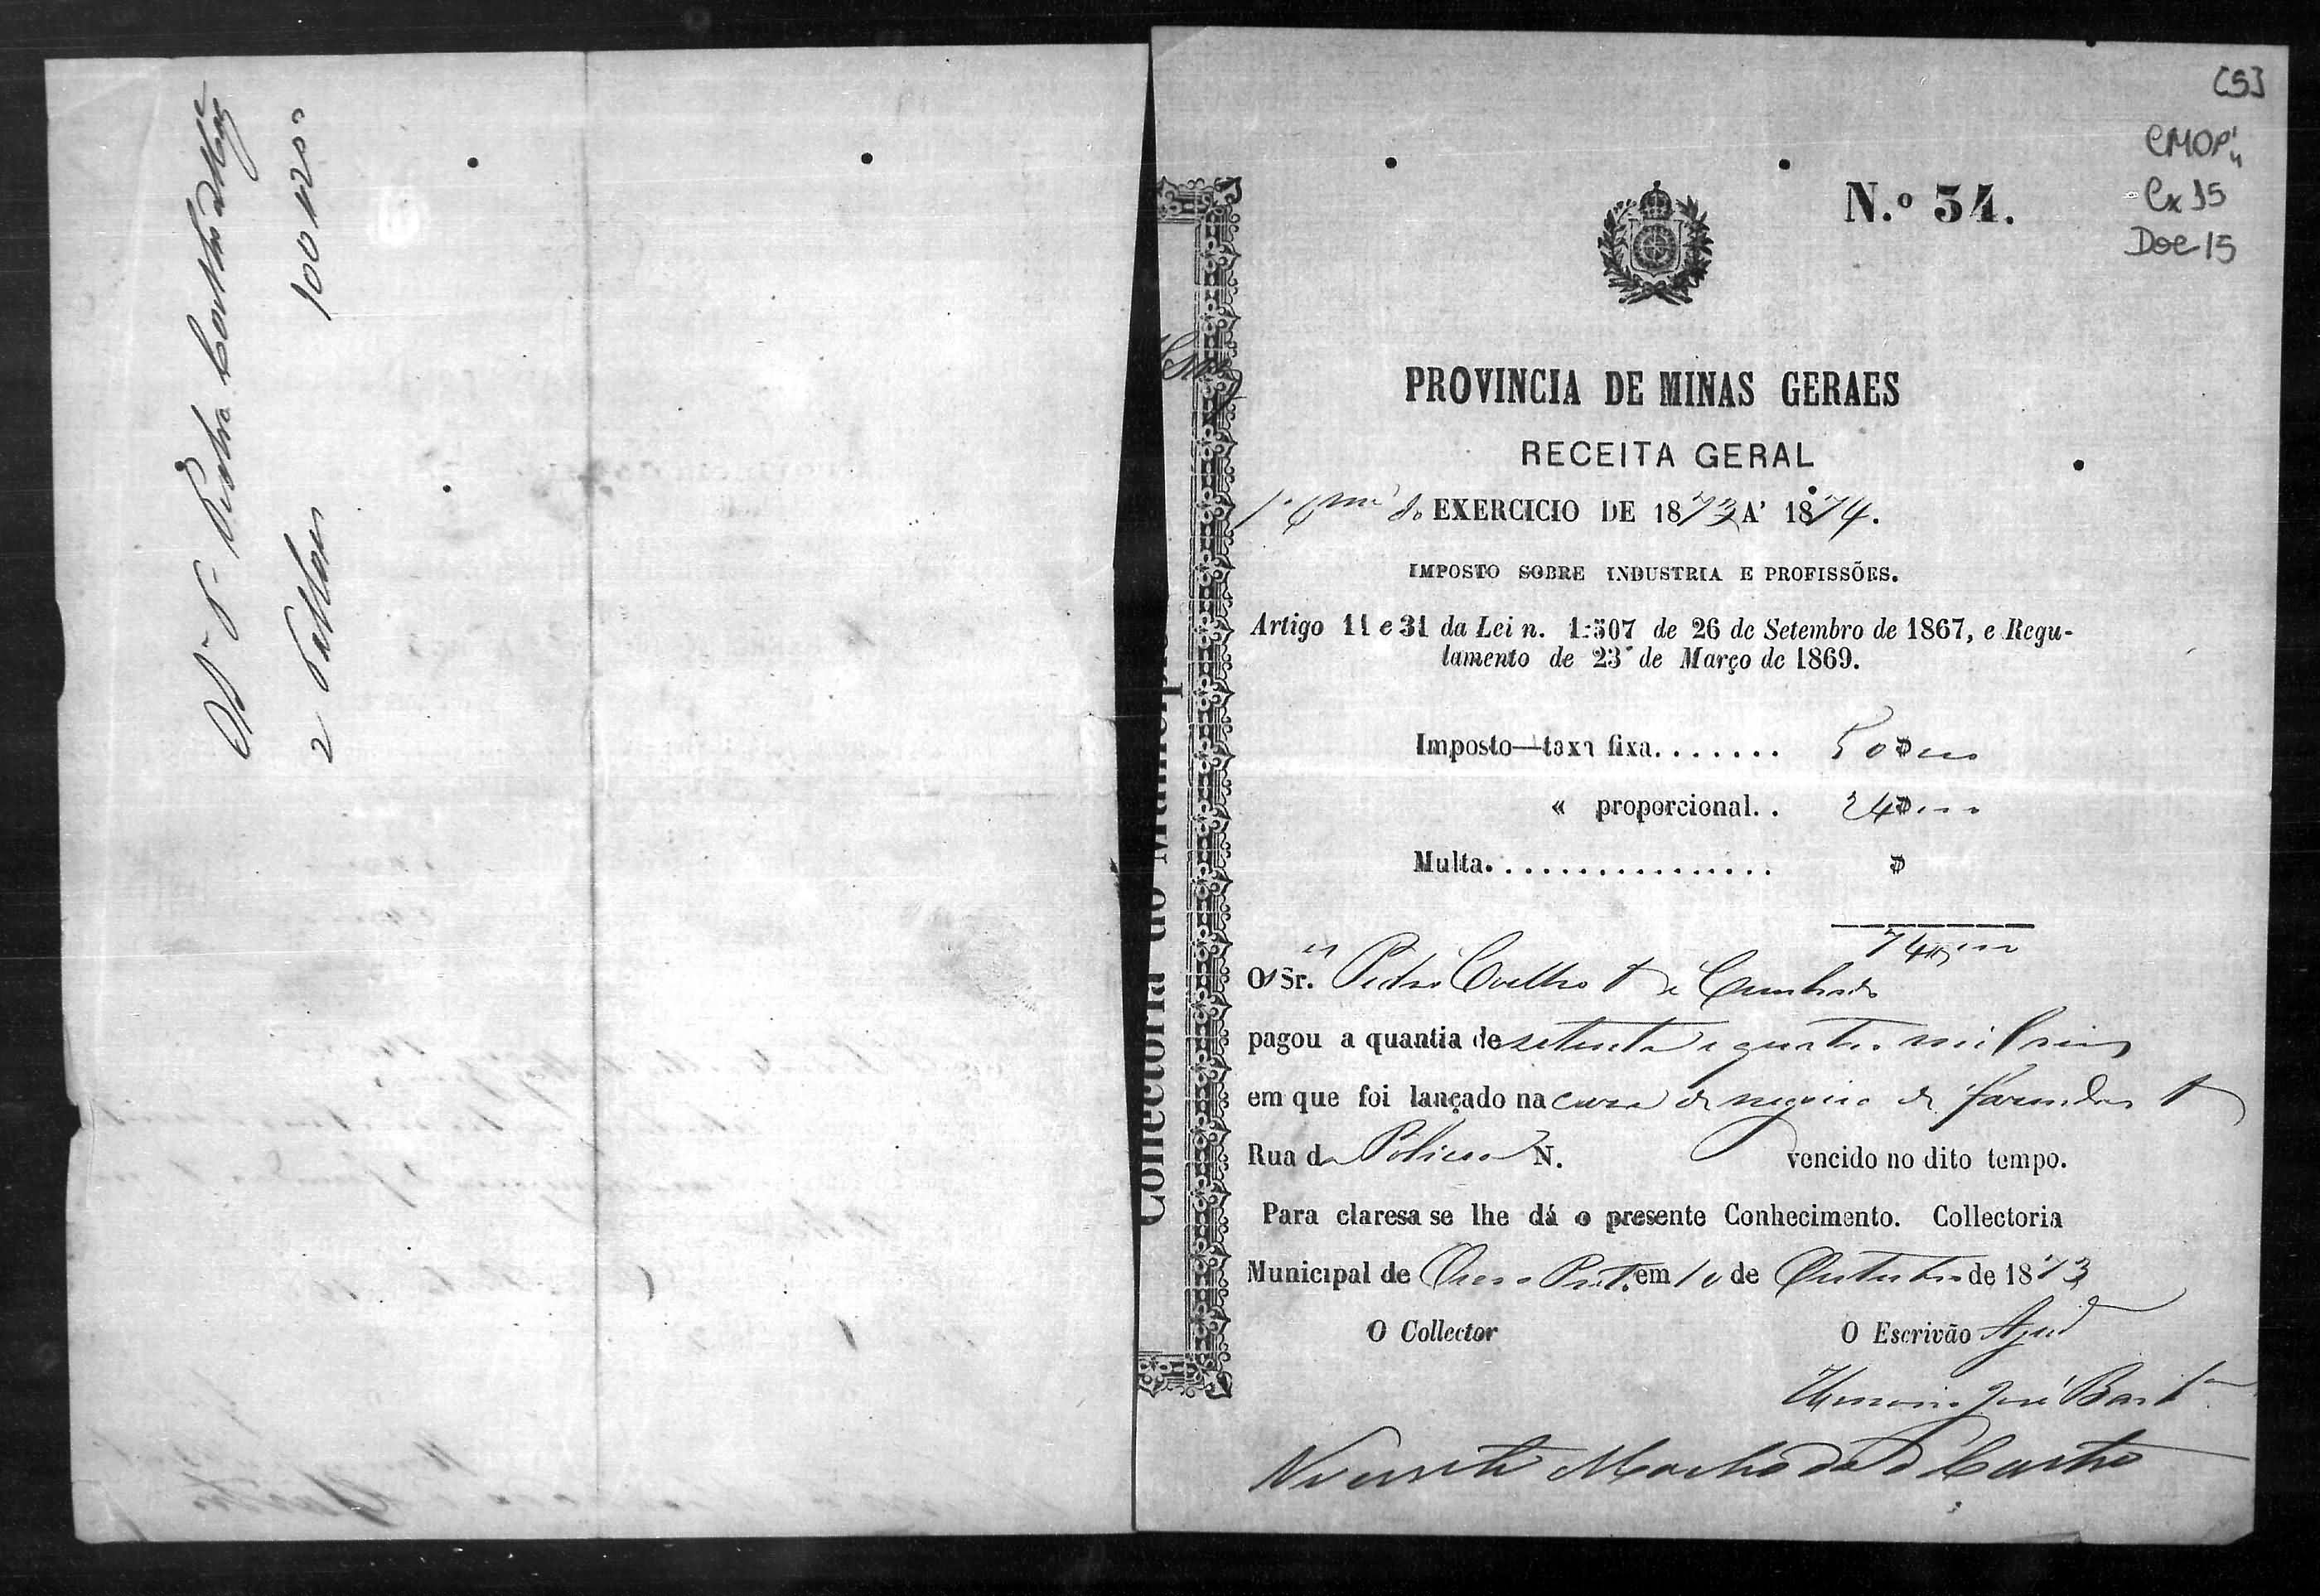 2
100
[5]
CMOP
Cx 15
Doc 15
N.º 54.
PROVINCIA DE MINAS GERAES
RECEITA GERAL
do EXERCICIO DE 1873 A' 1874.
IMPOSTO SOBRE INDUSTRIA E PROFISSÕES.
Artigo 11 e 31 da Lei n. 1:507 de 26 de Setembro de 1867, e Regu-
lamento de 23 de Março de 1869.
Imposto—taxa fixa....... 50$
« proporcional.. 24$
Multa................ $
74$
Os Sr.es Pedro Coelho & Cunhado
pagou a quantia de setenta e quatro mil reis
em que foi lançado na casa de negocio de fazendas
Rua da Policia N. vencido no dito tempo.
Para claresa se lhe dá o presente Conhecimento. Collectoria
Municipal de Ouro Preto em 10 de Outubro de 1873
O Collector O Escrivão Ajud
José
Vicente Machado de Castro
Collectoria do Municipio